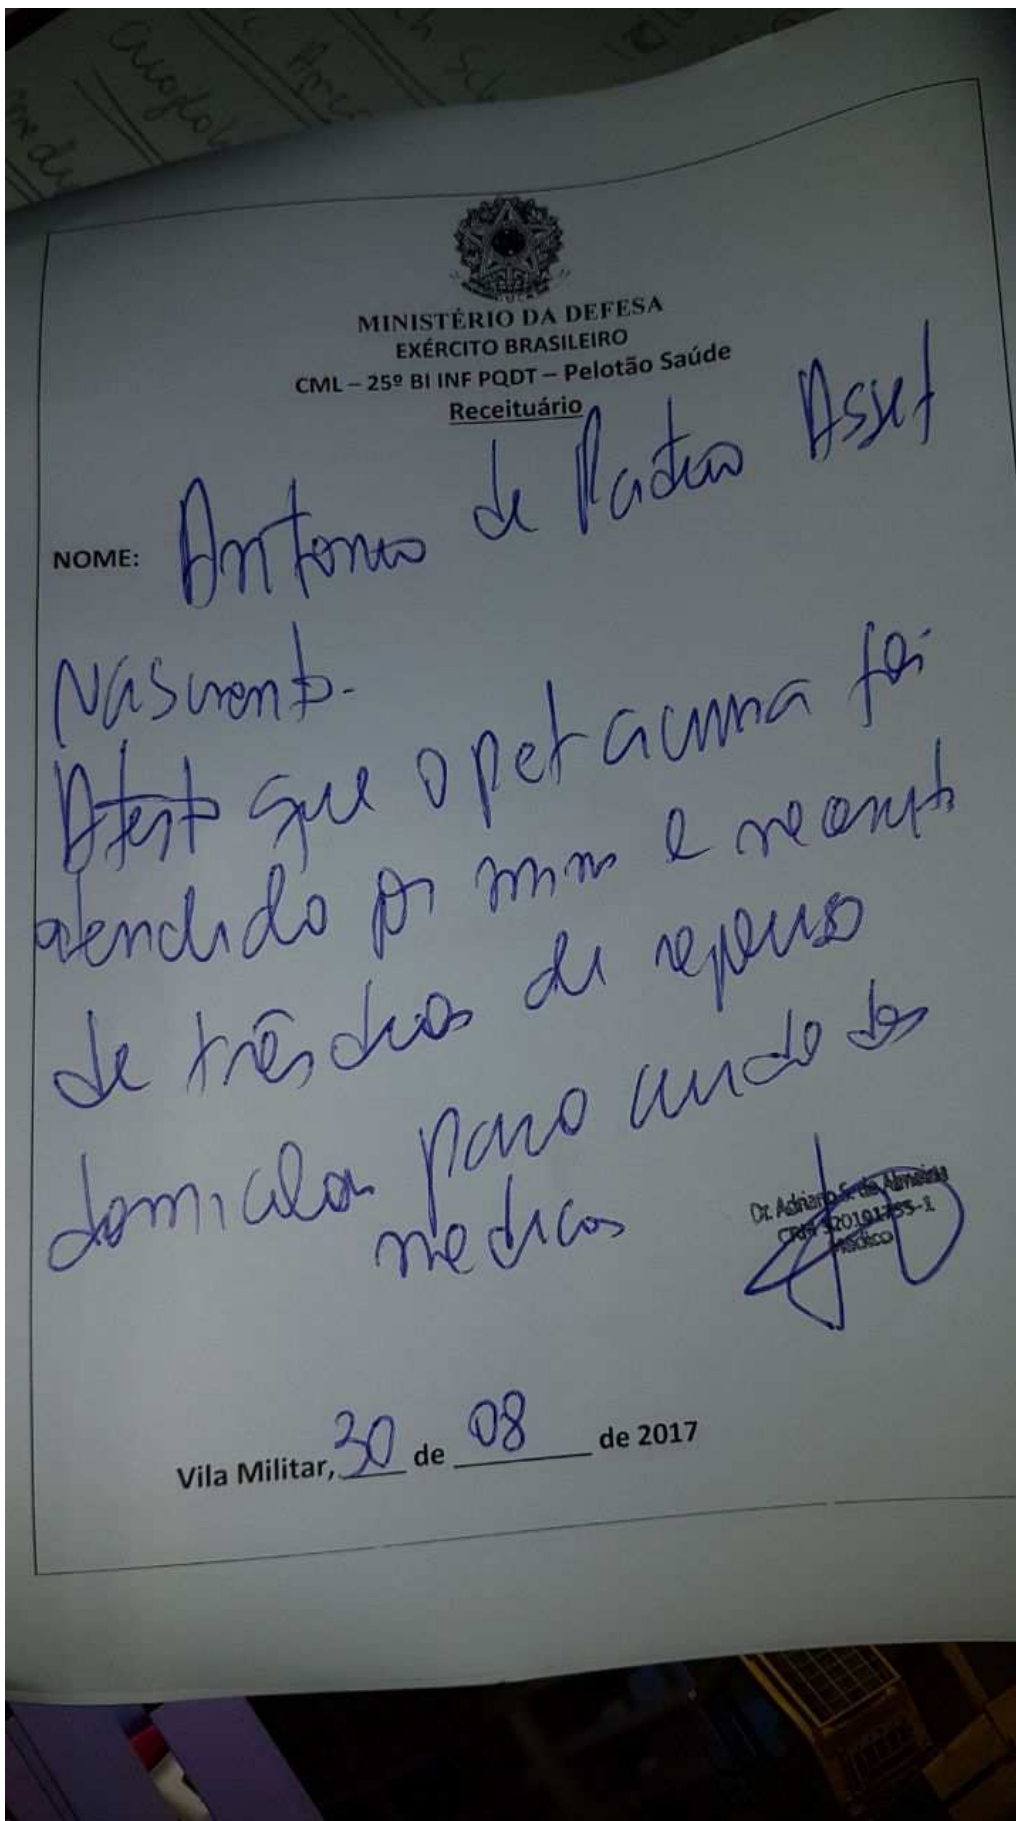 MINISTÉRIO DA DEFESA
EXÉRCITO BRASILEIRO
CML – 25º BI INF PQDT – Pelotão Saúde
Receituário
NOME: Antonio de Padua Assef
Nascimento.
Atesto que o pct acima foi
atendido por mim e necessita
de três dias de repouso
domiciliar para cuidados
médicos
Dr. Adriano S. de Almeida
Médico
Vila Militar, 30 de 08 de 2017